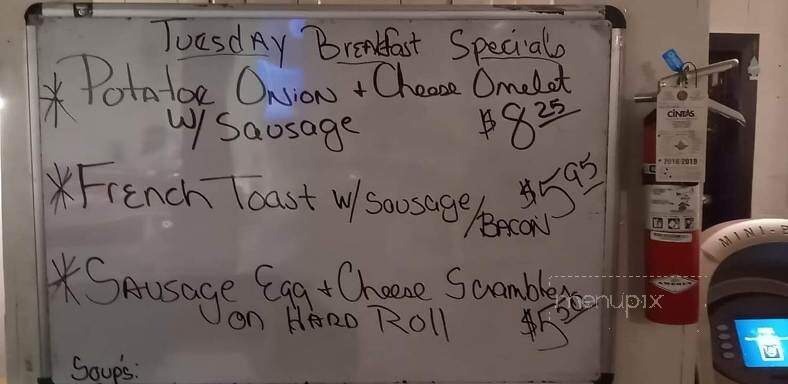 TUESDAY BREAKFAST Specials
* Potatoe ONION + Cheese Omelet
W/ Sausage $8.25
* French Toast w/ Sausage/BACON $5.95
* SAUSAGE Egg + Cheese Scrambler
on HARD Roll $5.50
Soup's:
CINTAS
2018/2019
AMEREX
MINI-B
menupix